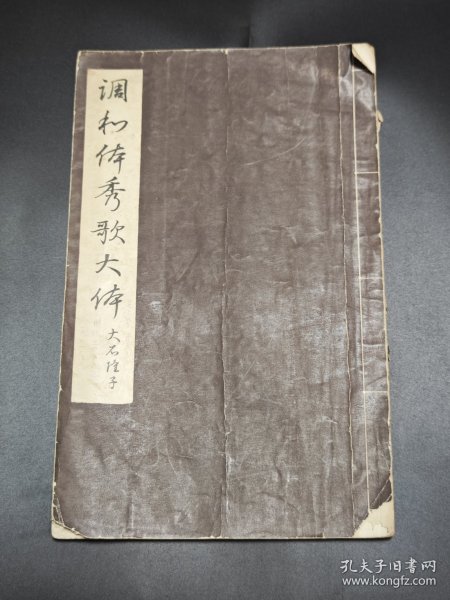 调和体秀歌大体
大石隆子
孔夫子旧书网
www.kongfz.com